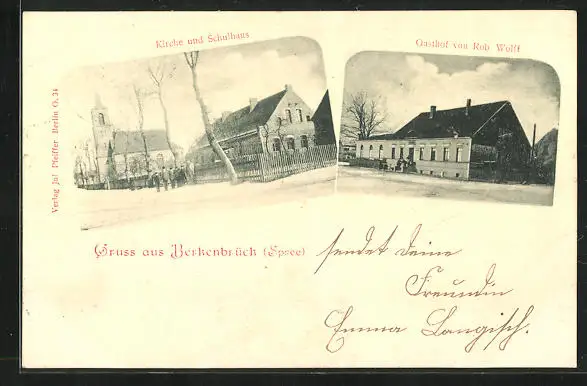 Kirche und Schulhaus
Gasthof von Rob. Wolff
Verlag Jul. Pfeiffer Berlin O. 34
Gruss aus Berkenbrück (Spree)
sendet deine
Freundin
Emma Langisch.